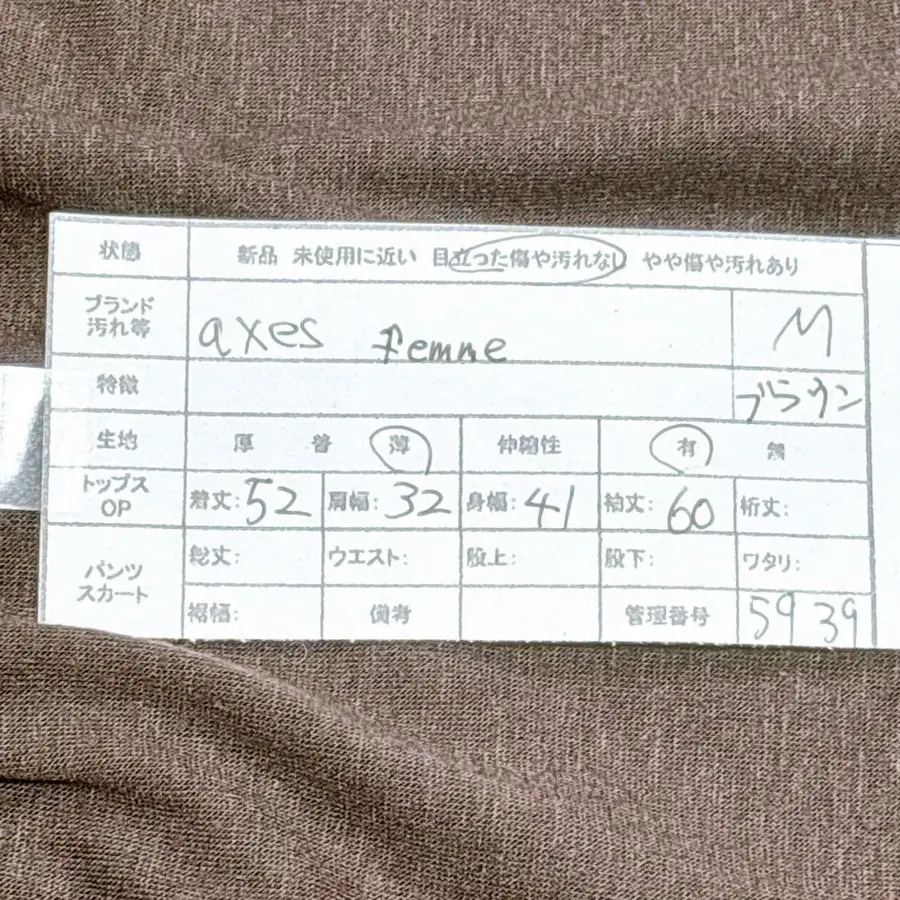 状態 新品 未使用に近い 目立った傷や汚れなし やや傷や汚れあり
ブランド
汚れ等
axes femme M
特徴 ブラウン
生地 厚 普 薄 伸縮性 有 無
トップス
OP
着丈:52 肩幅:32 身幅:41 袖丈:60 裄丈:
パンツ
スカート
総丈: ウエスト: 股上: 股下: ワタリ:
裾幅: 備考 管理番号 5939